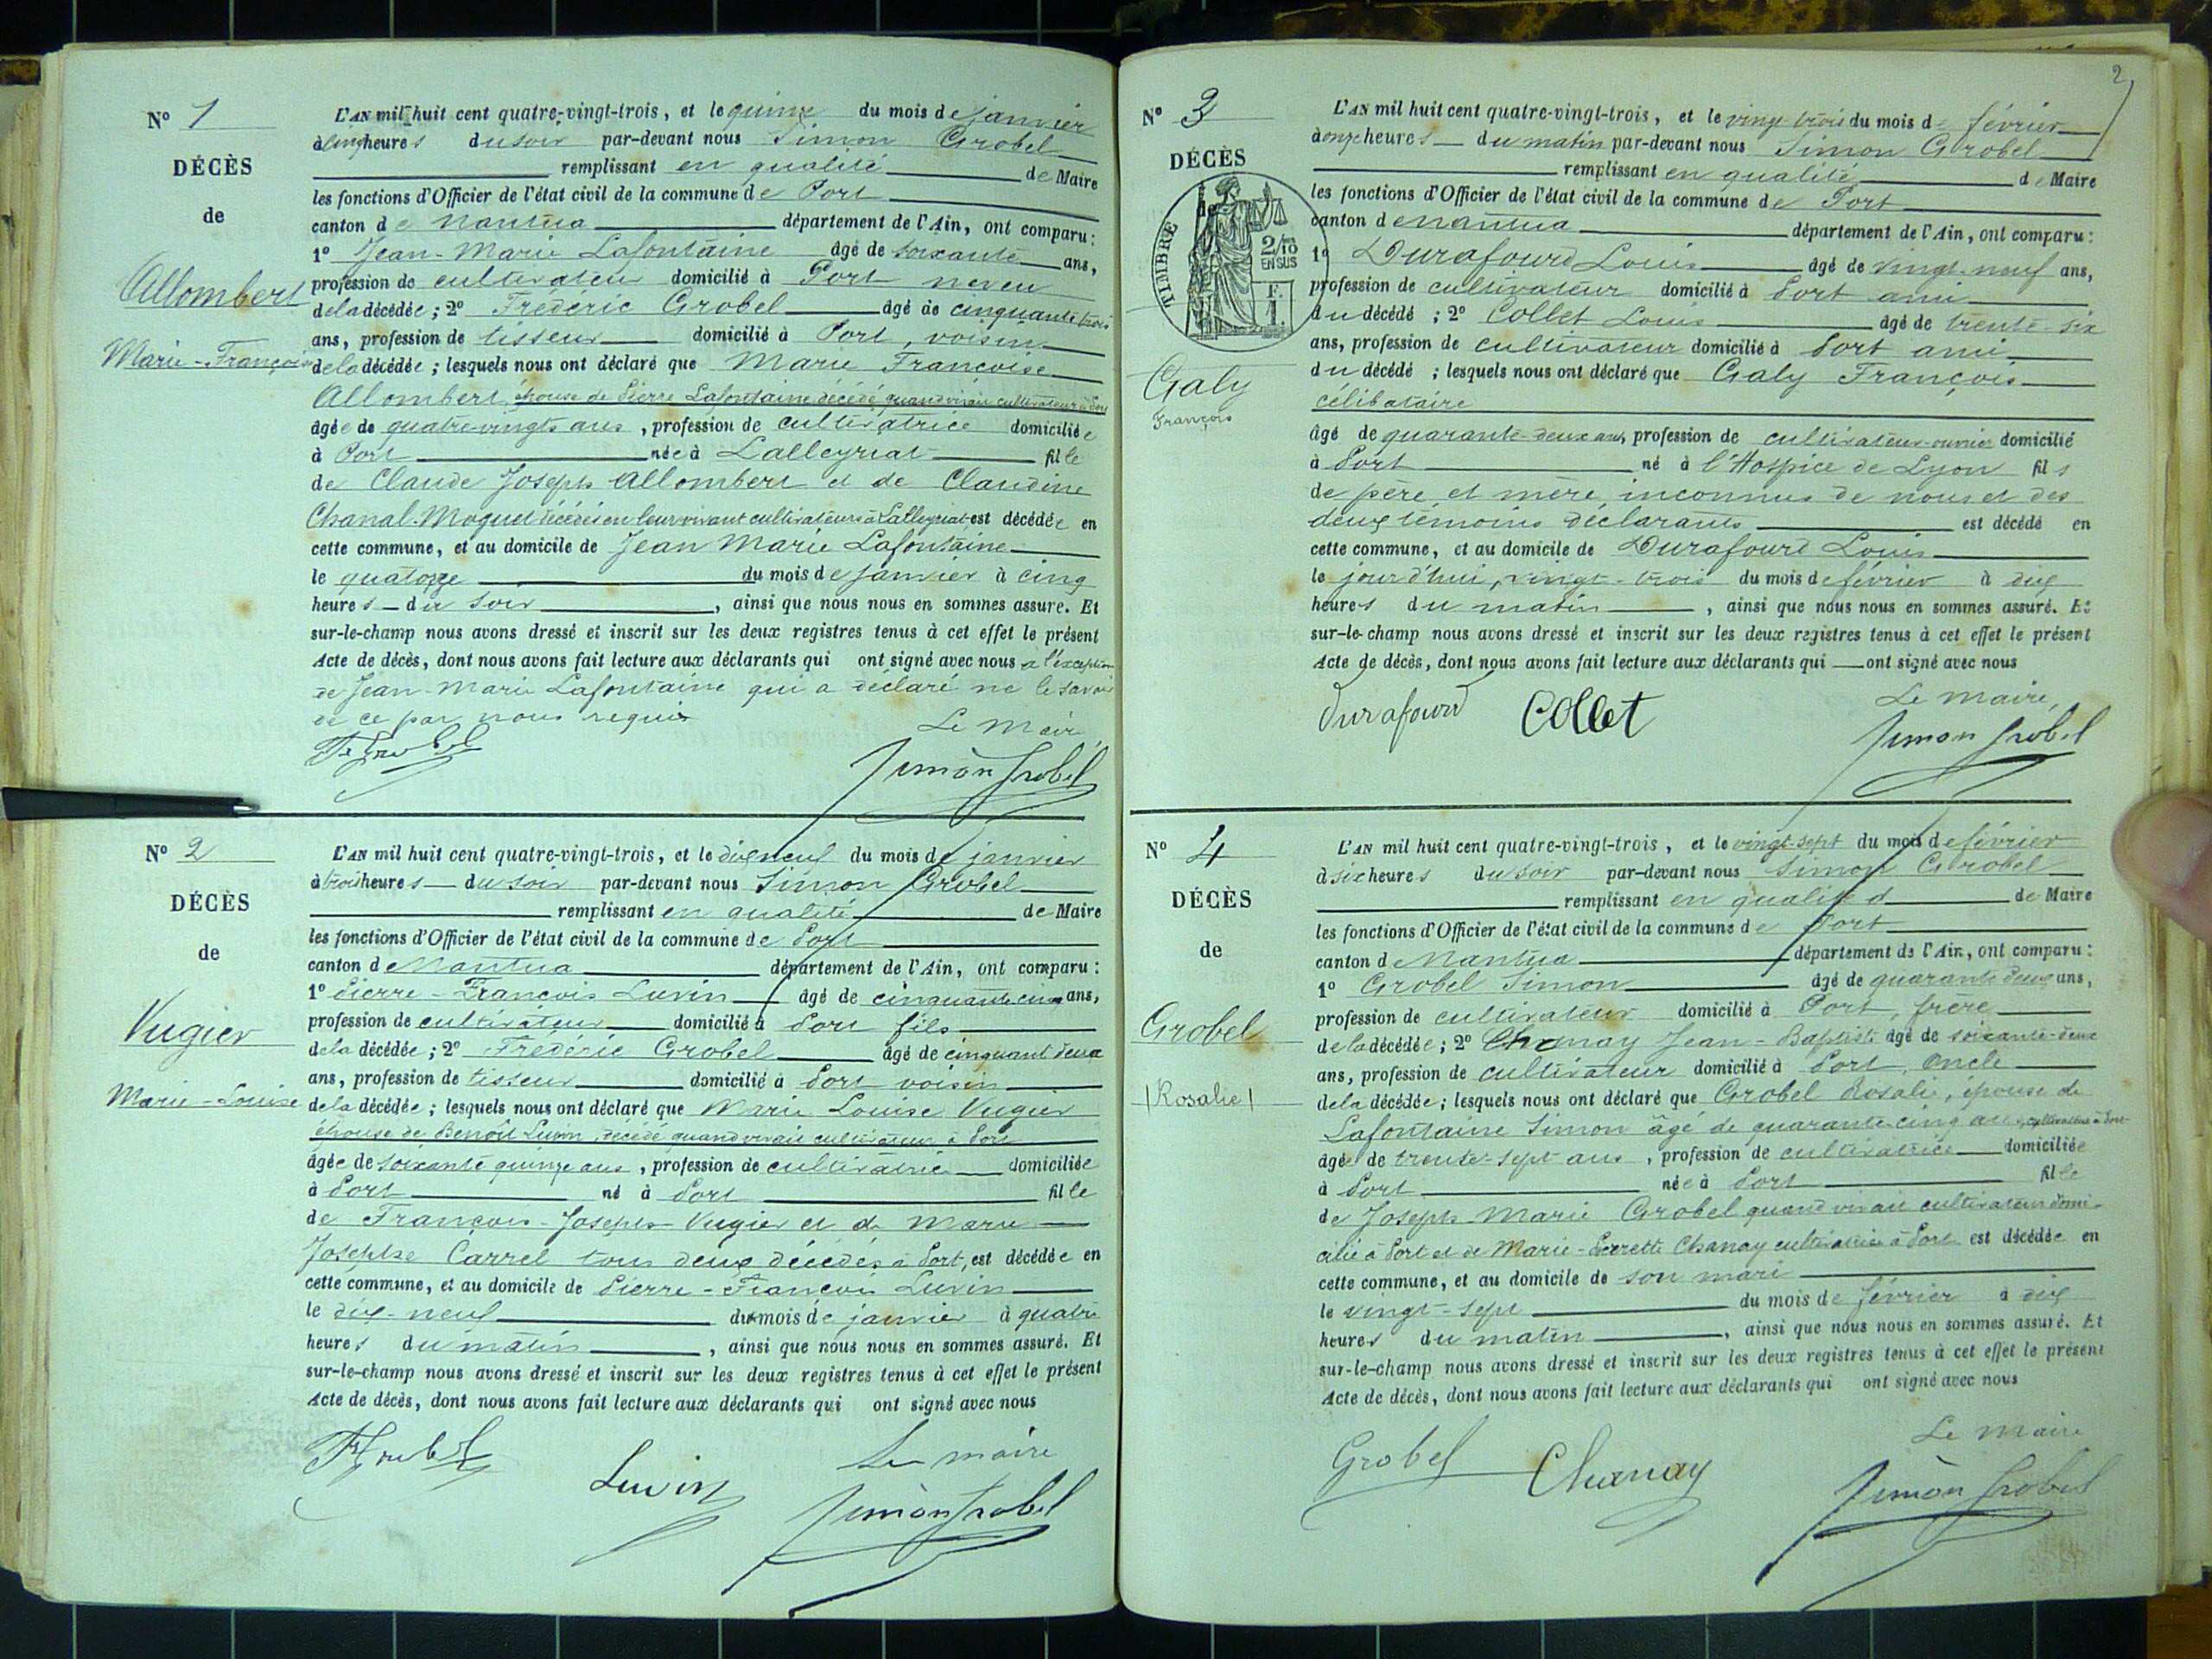 N° 1
DÉCÈS
de
Allombert
Marie-Françoise
L'AN mil huit cent quatre-vingt-trois, et le quinze du mois de janvier
à cinq heures du soir par-devant nous Simon Grobel
remplissant en qualité de Maire
les fonctions d'Officier de l'état civil de la commune de Port
canton de Nantua département de l'Ain, ont comparu :
1° Jean-Marie Lafontaine âgé de soixante ans,
profession de cultivateur domicilié à Port neveu
de la décédée ; 2° Frederic Grobel âgé de cinquante trois
ans, profession de tisseur domicilié à Port, voisin
de la décédée ; lesquels nous ont déclaré que Marie Françoise
Allombert, épouse de Pierre Lafontaine décédé quand vivait cultivateur à Port
âgée de quatre-vingts ans, profession de cultivatrice domiciliée
à Port née à Lalleyriat fille
de Claude Joseph Allombert et de Claudine
Chanal-Moquet décédés en leur vivant cultivateurs à Lalleyriat est décédée en
cette commune, et au domicile de Jean Marie Lafontaine
le quatorze du mois de janvier à cinq
heures du soir, ainsi que nous nous en sommes assuré. Et
sur-le-champ nous avons dressé et inscrit sur les deux registres tenus à cet effet le présent
Acte de décès, dont nous avons fait lecture aux déclarants qui ont signé avec nous à l'exception
de Jean-Marie Lafontaine qui a déclaré ne le savoir
de ce par nous requis
Le Maire,
Fr Grobel
Simon Grobel
N° 2
DÉCÈS
de
Vugier
Marie-Louise
L'AN mil huit cent quatre-vingt-trois, et le dix neuf du mois de janvier
à trois heures du soir par-devant nous Simon Grobel
remplissant en qualité de Maire
les fonctions d'Officier de l'état civil de la commune de Port
canton de Nantua département de l'Ain, ont comparu :
1° Pierre-François Luvin âgé de cinquante cinq ans,
profession de cultivateur domicilié à Port fils
de la décédée ; 2° Frédéric Grobel âgé de cinquant deux
ans, profession de tisseur domicilié à Port voisin
de la décédée ; lesquels nous ont déclaré que Marie Louise Vugier
épouse de Benoît Luvin, décédé quand vivait cultivateur à Port
âgée de soixante quinze ans, profession de cultivatrice domiciliée
à Port né à Port fille
de François-Joseph Vugier et de Marie
Josephte Carrel tous deux décédés à Port, est décédée en
cette commune, et au domicile de Pierre-François Luvin
le dix-neuf du mois de janvier à quatre
heures du matin, ainsi que nous nous en sommes assuré. Et
sur-le-champ nous avons dressé et inscrit sur les deux registres tenus à cet effet le présent
Acte de décès, dont nous avons fait lecture aux déclarants qui ont signé avec nous
Fr Grobel
Luvin
Le maire
Simon Grobel
2
N° 3
DÉCÈS
de
TIMBRE
2/10 EN SUS
F. 1.
Galy
François
L'AN mil huit cent quatre-vingt-trois, et le vingt trois du mois de février
à onze heures du matin par-devant nous Simon Grobel
remplissant en qualité de Maire
les fonctions d'Officier de l'état civil de la commune de Port
canton de nantua département de l'Ain, ont comparu :
1° Durafourd Louis âgé de vingt-neuf ans,
profession de cultivateur domicilié à Port ami
du décédé ; 2° Collet Louis âgé de trente-six
ans, profession de cultivateur domicilié à Port ami
du décédé ; lesquels nous ont déclaré que Galy François
célibataire
âgé de quarante-deux ans, profession de cultivateur-ouvrier domicilié
à Port né à l'Hospice de Lyon fils
de père et mère inconnus de nous et des
deux témoins déclarants est décédé en
cette commune, et au domicile de Durafourd Louis
le jour d'hui, vingt-trois du mois de février à dix
heures du matin, ainsi que nous nous en sommes assuré. Et
sur-le-champ nous avons dressé et inscrit sur les deux registres tenus à cet effet le présent
Acte de décès, dont nous avons fait lecture aux déclarants qui ont signé avec nous
Le maire,
Durafourd Collet
Simon Grobel
N° 4
DÉCÈS
de
Grobel
(Rosalie)
L'AN mil huit cent quatre-vingt-trois, et le vingt-sept du mois de février
à six heures du soir par-devant nous Simon Grobel
remplissant en qualité d de Maire
les fonctions d'Officier de l'état civil de la commune de Port
canton de Nantua département de l'Ain, ont comparu :
1° Grobel Simon âgé de quarante deux ans,
profession de cultivateur domicilié à Port, frère
de la décédée ; 2° Chanay Jean-Baptiste âgé de soixante-deux
ans, profession de cultivateur domicilié à Port, oncle
de la décédée ; lesquels nous ont déclaré que Grobel Rosalie, épouse de
Lafontaine Simon âgé de quarante-cinq ans, cultivateur à Port
âgée de trente-sept ans, profession de cultivatrice domiciliée
à Port née à Port fille
de Joseph Marie Grobel quand vivait cultivateur domi-
cilié à Port et de Marie-Pierrette Chanay cultivatrice à Port est décédée en
cette commune, et au domicile de son mari
le vingt-sept du mois de février à dix
heures du matin, ainsi que nous nous en sommes assuré. Et
sur-le-champ nous avons dressé et inscrit sur les deux registres tenus à cet effet le présent
Acte de décès, dont nous avons fait lecture aux déclarants qui ont signé avec nous
Le Maire
Grobel Chanay
Simon Grobel